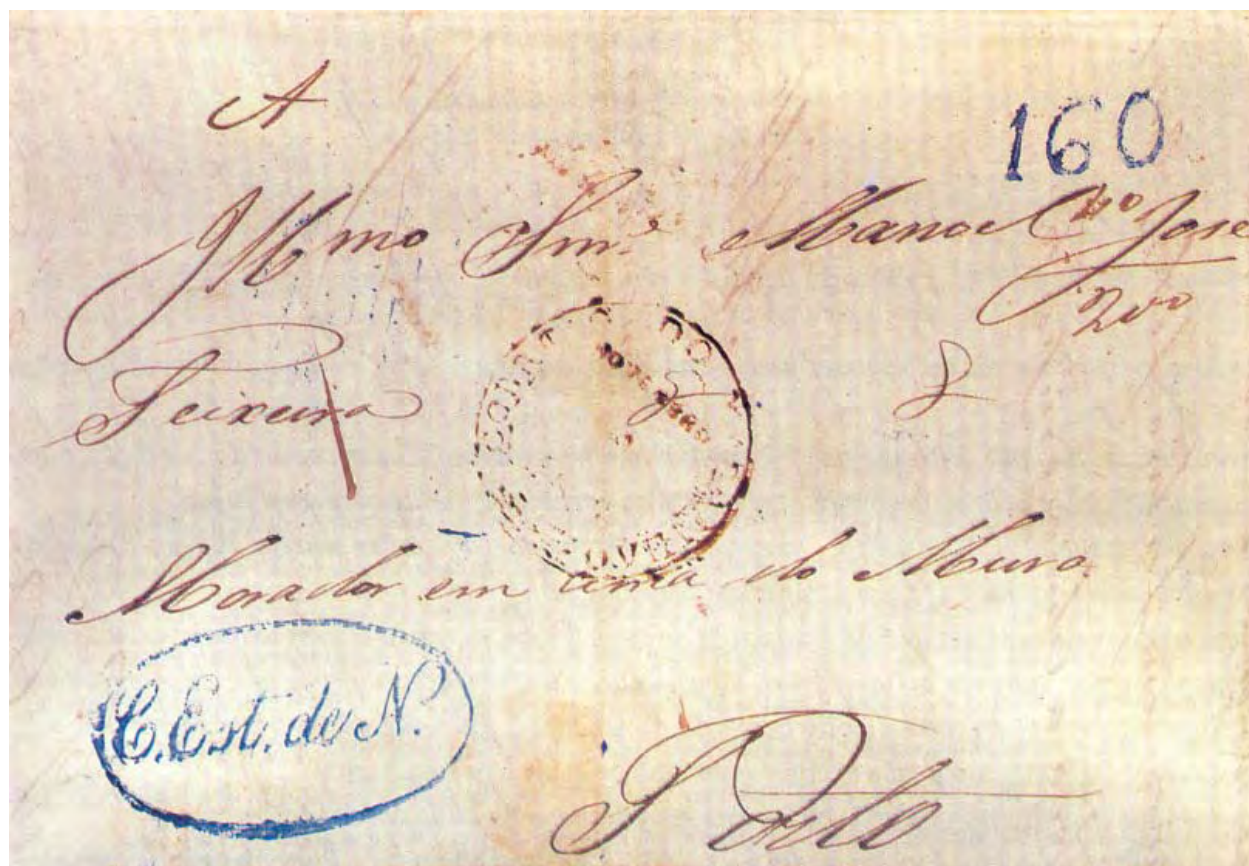 A
160
Illmo Snr. Manoel José
Teixeira
CORREIO
Morador em cima do Muro
C. Est. de N.
Porto